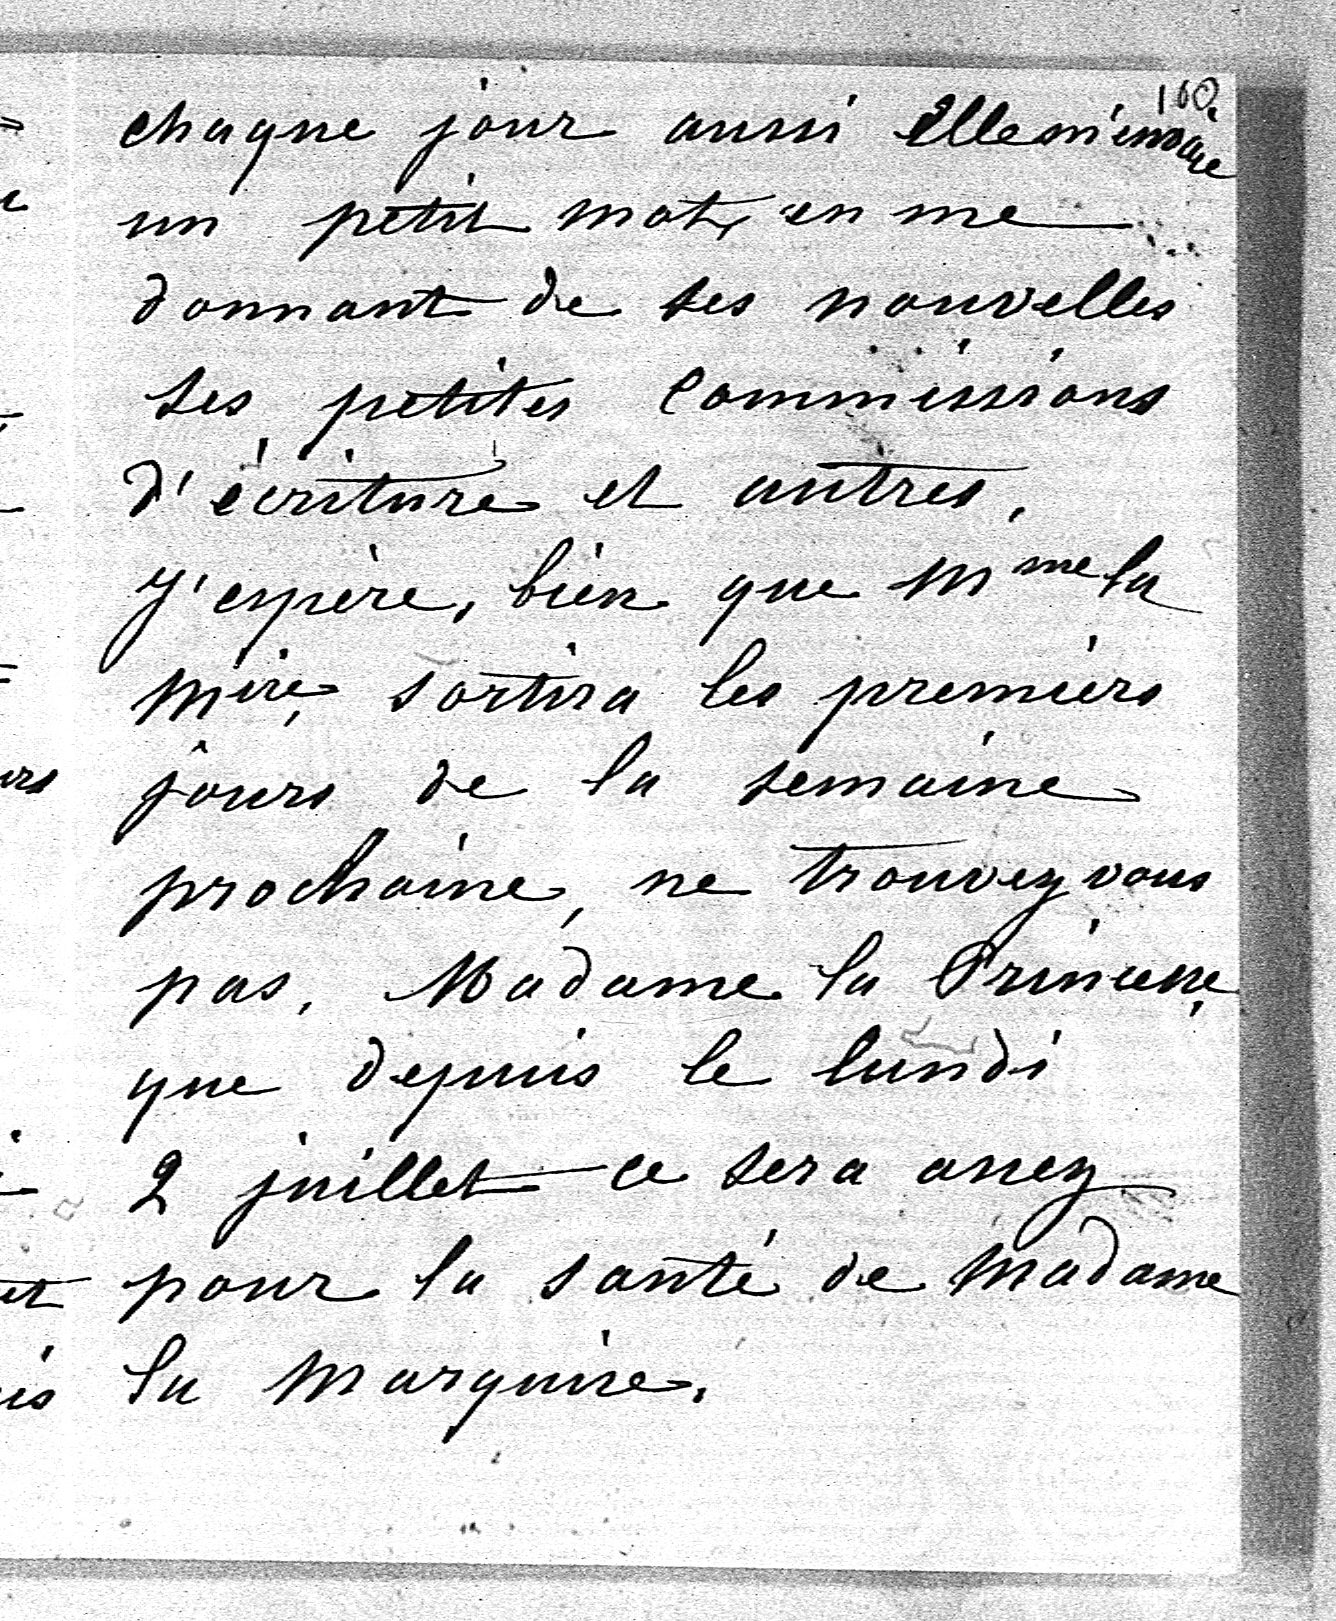 160
chaque jour aussi Elle m'envoie
un petit mot, en me
donnant de ses nouvelles
ses petites commissions
d'écriture et autres,
J'espère, bien que Mme la
mère, sortira les premiers
jours de la semaine
prochaine, ne trouvez vous
pas, Madame la Princesse,
que depuis le lundi
2 juillet ce sera assez
pour la santé de Madame
la Marquise.